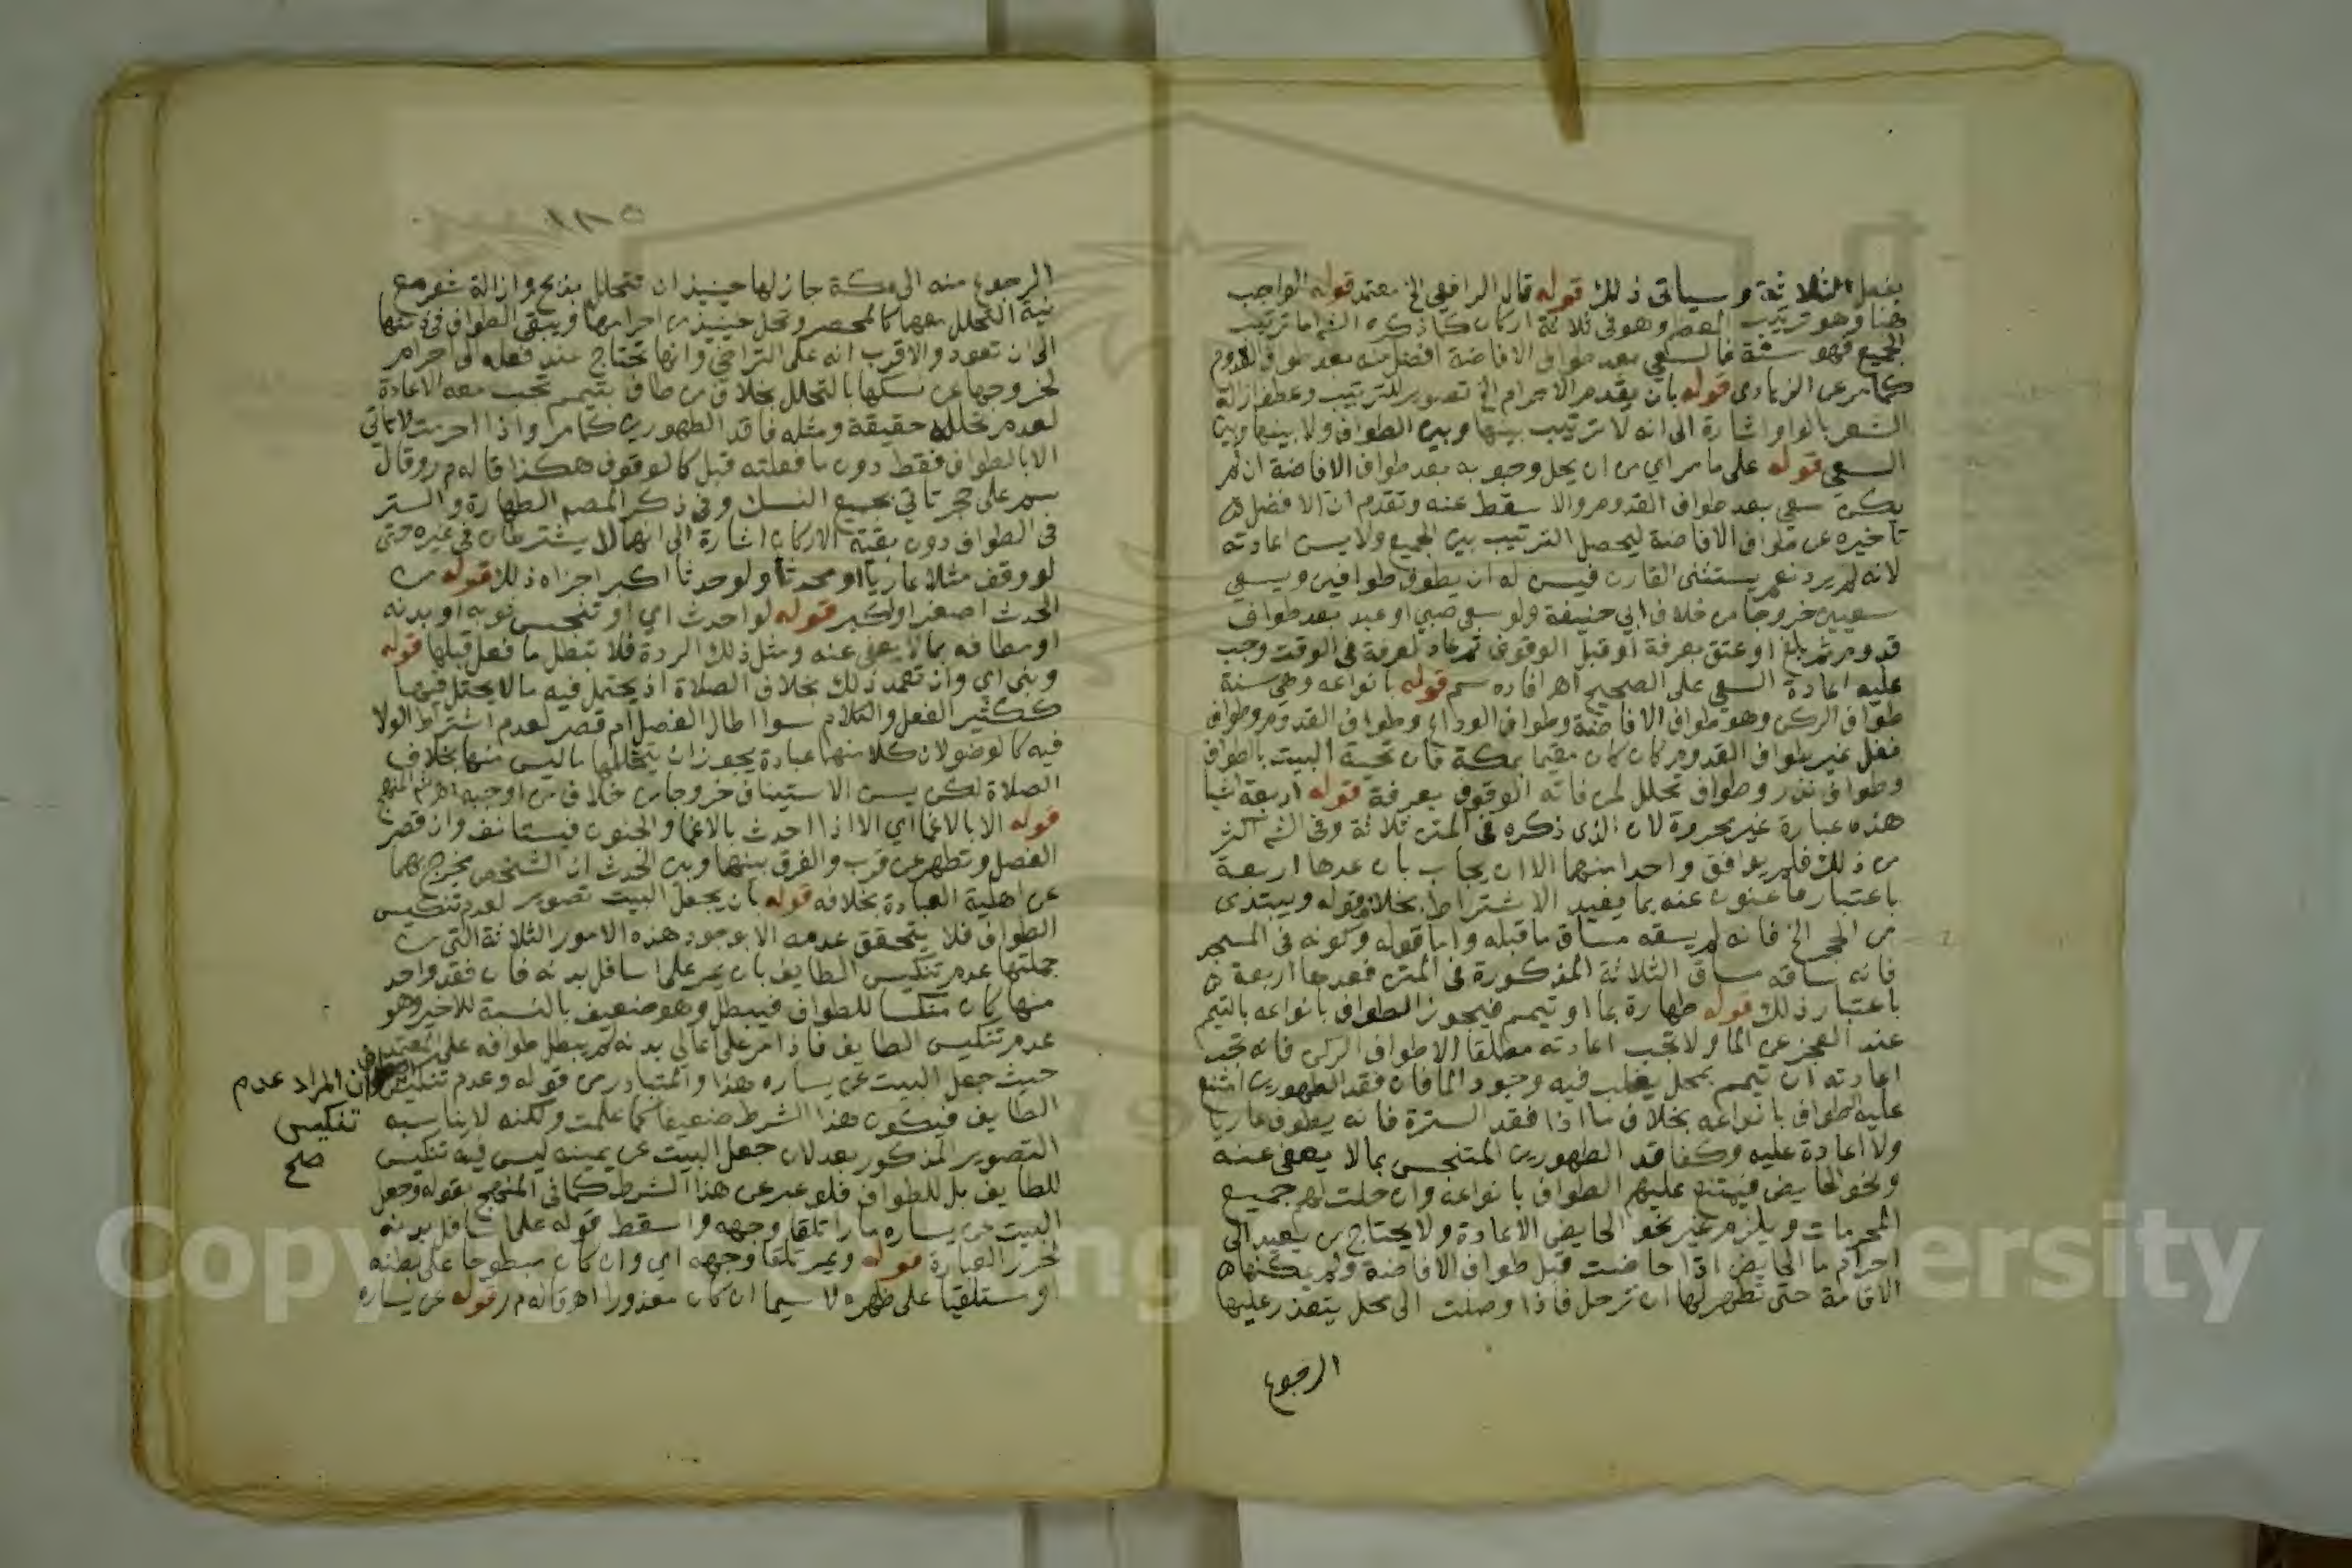 بفعل الثلاثة وسياتي ذلك قوله قال الرافعي الخ معتمد قوله الواجب
هنا وهو ترتيب المعظم وهو في ثلاثة اركان كما ذكره الش اما ترتيب
الجميع فهو سنة فالسعي بعد طواف الافاضة افضل منه بعد طواف القدوم
كما مر عن الزيادي قوله بان يقدم الاحرام الخ تصوير للترتيب وعطف ازالة
الشعر بالواو اشارة الى انه لا ترتيب بينها وبين الطواف ولا بينها وبين
السعي قوله على ما مر اي من ان محل وجوبه بعد طواف الافاضة ان لم
يكن سعى بعد طواف القدوم والا سقط عنه وتقدم ان الافضل
تاخيره عن طواف الافاضة ليحصل الترتيب بين الجميع ولا يسن اعادته
لانه لم يرد نعم يستثنى القارن فيسن له ان يطوف طوافين ويسعى
سعيين خروجا من خلاف ابي حنيفة ولو سعى صبي او عبد بعد طواف
قدوم ثم بلغ او عتق بعرفة او قبل الوقوف ثم عاد لعرفة في الوقت وجب
عليه اعادة السعي على الصحيح اهـ افاده سم قوله بانواعه وهي ستة
طواف الركن وهو طواف الافاضة وطواف الوداع وطواف القدوم وطواف
نفل غير طواف القدوم كان كان مقيما بمكة فان تحية البيت بالطواف
وطواف نذر وطواف تحلل لمن فاته الوقوف بعرفة قوله اربعة اشيا
هذه عبارة غير محررة لان الذي ذكره في المتن ثلاثة وفي الش اكثر
من ذلك فلم يوافق واحدا منهما الا ان يجاب بان عدها اربعة
باعتبار ما عنون عنه بما يفيد الاشتراط بخلاف قوله ويبتدى
من الحجر الخ فانه لم يسقه مساق ما قبله واما قوله وكونه في المسجد
فانه ساقه مساق الثلاثة المذكورة في المتن فعدها اربعة
باعتبار ذلك قوله طهارة بما او تيمم فيجوز الطواف بانواعه بالتيمم
عند العجز عن الما ولا تجب اعادته مطلقا الا طواف الركن فانه تجب
اعادته ان تيمم بمحل يغلب فيه وجود الما فان فقد الطهورين امتنع
عليه الطواف بانواعه بخلاف ما اذا فقد السترة فانه يطوف عاريا
ولا اعادة عليه وكفاقد الطهورين المتنجس بما لا يعفى عنه
ونحو الحايض فيمتنع عليهم الطواف بانواعه وان حلت لهم جميع
المحرمات ويلزم غير نحو الحايض الاعادة ولا يحتاج من يعيد الى
احرام ما الحايض اذا حاضت قبل طواف الافاضة ولم يمكنها
الاقامة حتى تطهر لها ان ترحل فاذا وصلت الى محل يتعذر عليها
الرجوع
الرجوع منه الى مكة جاز لها حينيذ ان تتحلل بذبح وازالة شعر مع
نية التحلل بهما كالمحصر وتحل حينيذ من احرامها ويبقى الطواف في ذمتها
الى ان تعود والاقرب انه على التراخي وانها تحتاج عند فعله الى احرام
لخروجها من نسكها بالتحلل بخلاف من طاف بتيمم تجب معه الاعادة
لعدم تحلله حقيقة ومثله فاقد الطهورين كما مر واذا احرمت لا تاتي
الا بالطواف فقط دون ما فعلته قبل كالوقوف هكذا قاله م ر وقال
سم على حجر تاتي بجميع النسك وفي ذكر المصم الطهارة والستر
في الطواف دون بقية الاركان اشارة الى انهما لا يشترطان في غيره حتى
لو وقف مثلا عاريا او محدثا ولو حدثا اكبر اجزاه ذلك قوله من
الحدث اصغر او اكبر قوله لو احدث اي او تنجس ثوبه او بدنه
او مطافه بما لا يعفى عنه ومثل ذلك الردة فلا تبطل ما فعل قبلها قوله
وبنى اي وان تعمد ذلك بخلاف الصلاة اذ يحتمل فيه ما لا يحتمل فيها
ككثير الفعل والكلام سوا اطال الفصل ام قصر لعدم اشتراط الولا
فيه كالوضو لان كلا منهما عبادة يجوز ان يتخللها ما ليس منها بخلاف
الصلاة لكن يسن الاستيناف خروجا من خلاف من اوجبه اهـ ش المنهج
قوله الا بالاغما اي الا اذا احدث بالاغما والجنون فيستانف وان قصر
الفصل وتطهر عن قرب والفرق بينهما وبين الحدث ان الشخص يخرج بهما
عن اهلية العبادة بخلافه قوله بان يجعل البيت تصوير لعدم تنكيس
الطواف فلا يتحقق عدمه الا بوجود هذه الامور الثلاثة التي من
جملتها عدم تنكيس الطايف بان يمر على اسافل بدنه فان فقد واحد
منها كان منكسا للطواف فيبطل وهو ضعيف بالنسبة للاخير وهو
عدم تنكيس الطايف فاذا مر على اعالي بدنه لم يبطل طوافه على المعتمد
حيث جعل البيت عن يساره هذا والمتبادر من قوله وعدم تنكيس ان المراد عدم
تنكيس
صح
الطايف فيكون هذا الشرط ضعيفا كما علمت ولكنه لا يناسبه
التصوير المذكور بعد لان جعل البيت عن يمينه ليس فيه تنكيس
للطايف بل للطواف فلو عبر عن هذا الشرط كما في المنهج بقوله وجعل
البيت عن يساره مارا تلقا وجهه واسقط قوله على اسافل بدنه
لحرر العبارة قوله ويمر تلقا وجهه اي وان كان مبطوحا على بطنه
او مستلقيا على ظهره لا سيما ان كان معذورا اهـ قاله م ر قوله عن يساره